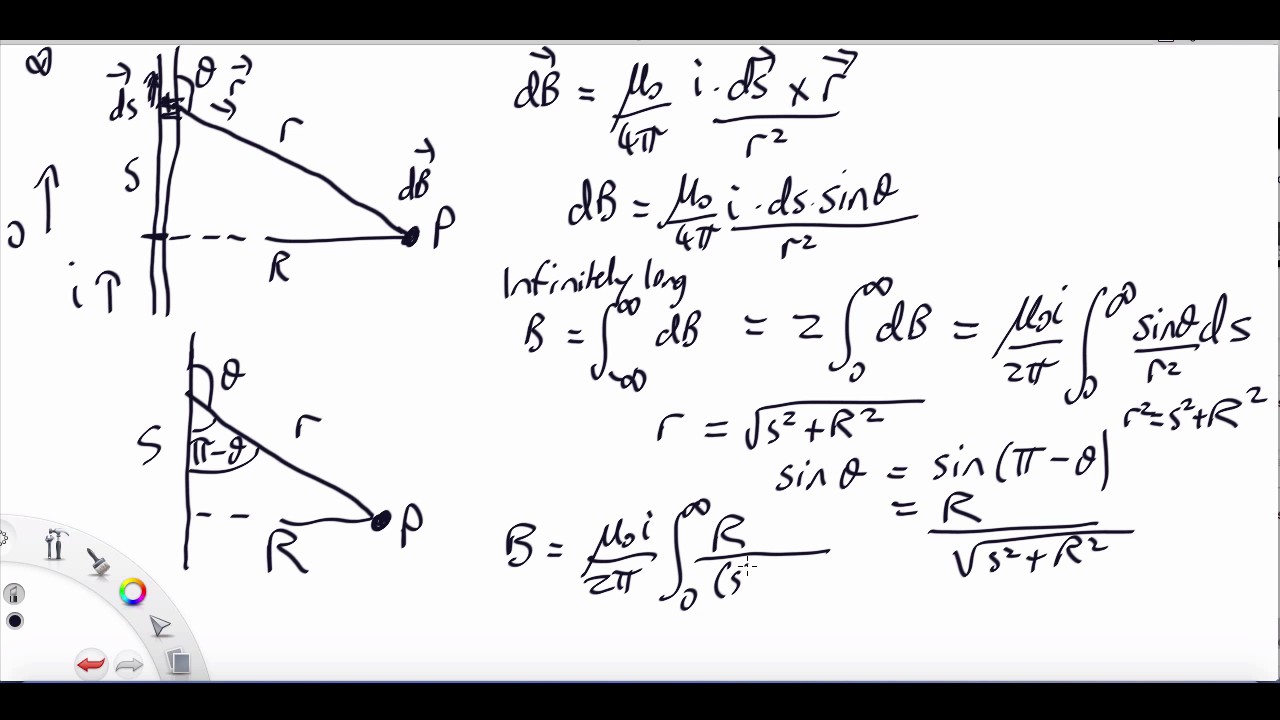 ∞
ds→ θ r→
r
S
dB→
P
0
R
i ↑
dB→ = μ₀/4π i · ds→ × r→ / r²
dB = μ₀/4π i · ds · sinθ / r²
Infinitely long
B = ∫_{-∞}^{∞} dB = 2 ∫_0^∞ dB = μ₀i/2π ∫_0^∞ sinθ ds / r²
r = √(s² + R²) r² = s² + R²
sin θ = sin(π - θ)
= R / √(s² + R²)
B = μ₀i/2π ∫_0^∞ R / (s
θ
S
r
π-θ
R
P